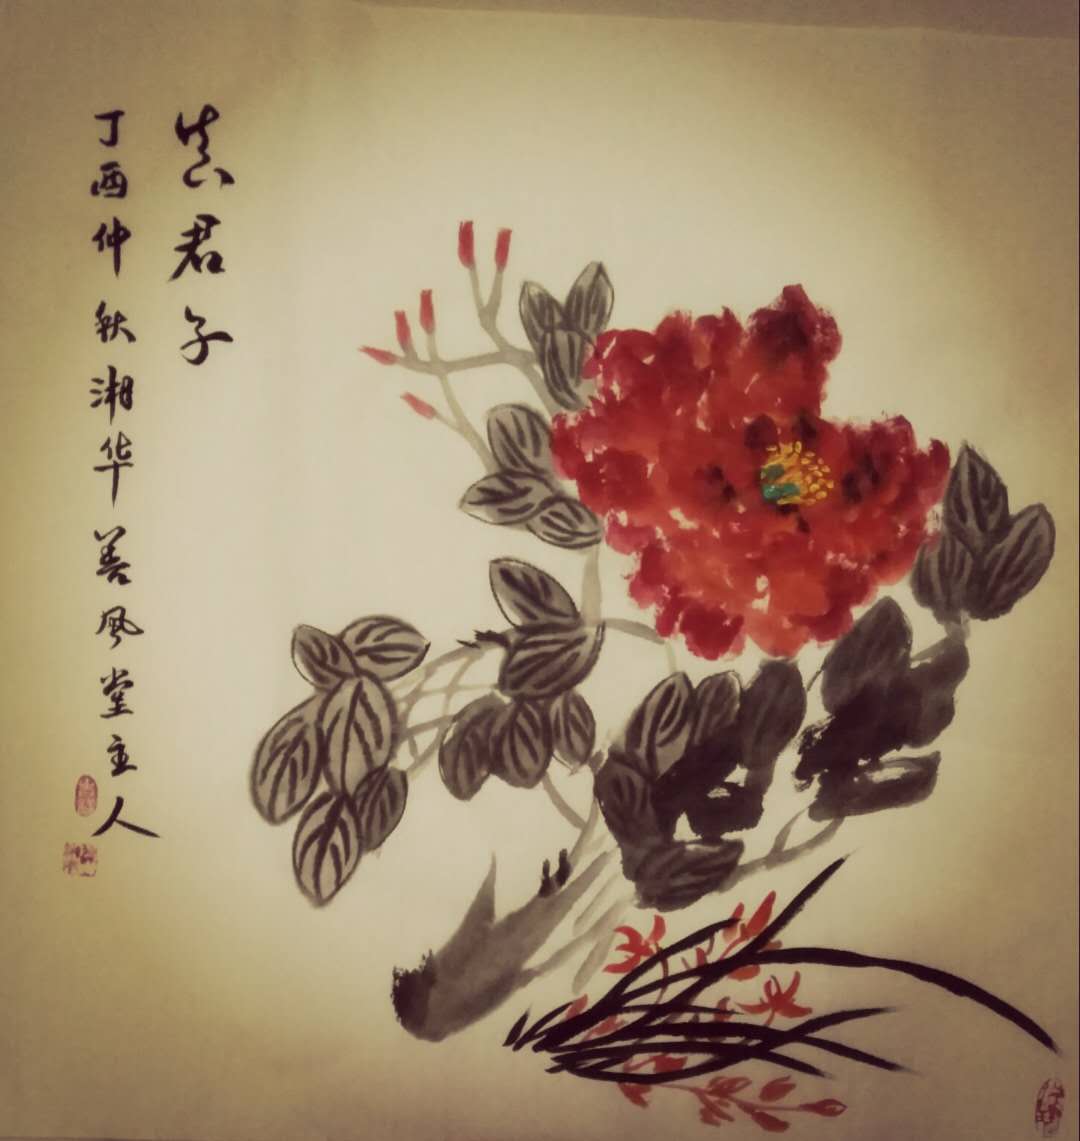 真君子
丁酉仲秋湘华善风堂主人